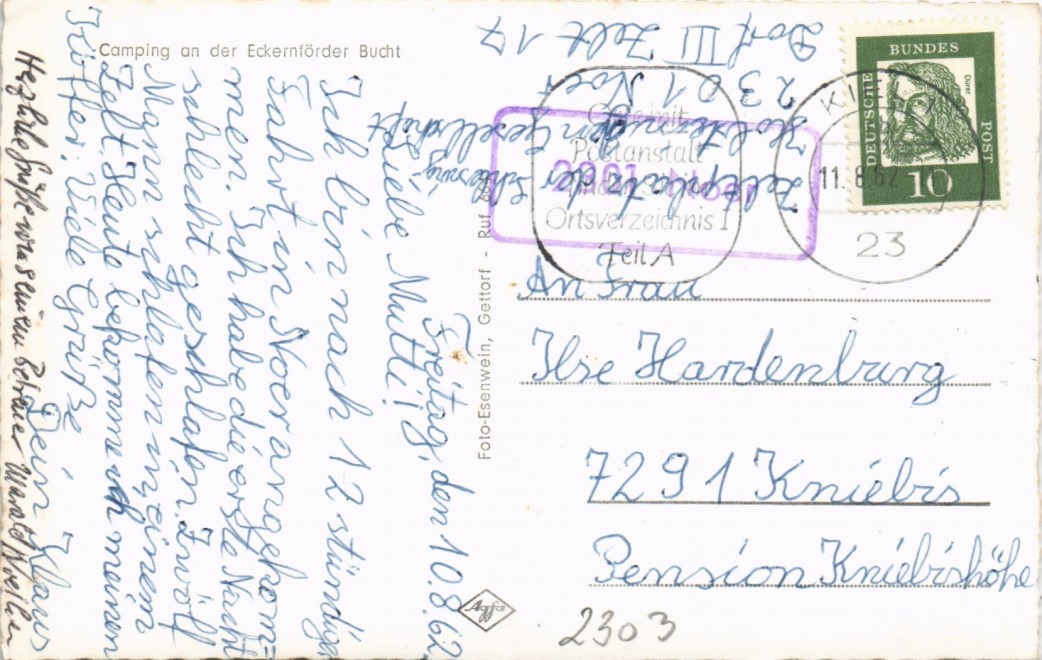 Camping an der Eckernförder Bucht
Freitag, den 10.8.62
Liebe Mutti!
Ich bin nach 12 stündiger
Fahrt in Noer angekom-
men. Ich habe die erste Nacht
schlecht geschlafen. Zwölf
Mann schlafen in einem
Zelt. Heute bekommen wir meinen
Koffer. Viele Grüße
Dein Klaus
Herzliche Grüße von seinem Betreuer
Foto-Esenwein, Gettorf - Ruf
Agfa
Zeltplatz der Schleswig
Holsteinischen Gesellschaft
2301 Noer
Dorf III Zelt 17
BUNDES
DEUTSCHE
POST
Dürer
10
KIEL
11.8.62
23
2301 Noer
Postanstalt
Ortsverzeichnis I
Teil A
An Frau
Ilse Hardenburg
7291 Kniebis
Pension Kniebishöhe
2303